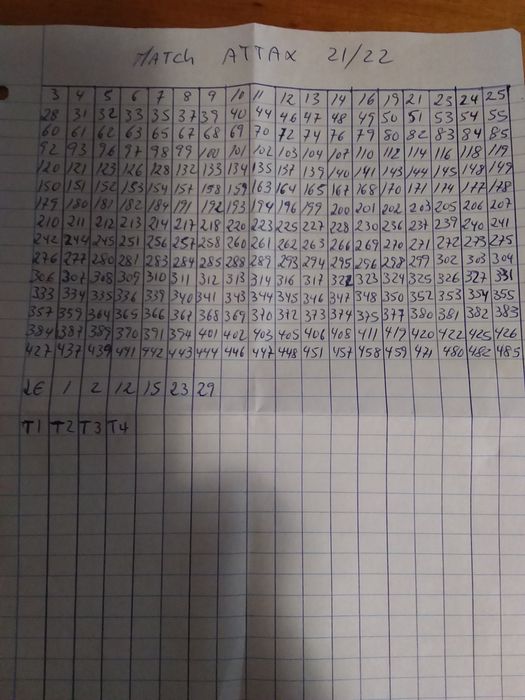 MATCH ATTAX 21/22
3 4 5 6 7 8 9 10 11 12 13 14 16 19 21 23 24 25
28 31 32 33 35 37 39 40 44 46 47 48 49 50 51 53 54 55
60 61 62 63 65 67 68 69 70 72 74 76 79 80 82 83 84 85
92 93 96 97 98 99 100 101 102 103 104 107 110 112 114 116 118 119
120 121 123 126 128 132 133 134 135 137 139 140 141 143 144 145 148 149
150 151 152 153 154 157 158 159 163 164 165 167 168 170 171 174 177 178
179 180 181 182 184 191 192 193 194 196 199 200 201 202 203 205 206 207
210 211 212 213 214 217 218 220 223 225 227 228 230 236 237 239 240 241
242 244 245 251 256 257 258 260 261 262 263 266 269 270 271 272 273 275
276 277 280 281 283 284 285 288 289 293 294 295 296 298 299 302 303 304
306 307 308 309 310 311 312 313 314 316 317 322 323 324 325 326 327 331
333 334 335 336 339 340 341 343 344 345 346 347 348 350 352 353 354 355
357 359 364 365 366 367 368 369 370 372 373 374 375 377 380 381 382 383
384 387 389 390 391 394 401 402 403 405 406 408 411 419 420 422 425 426
427 437 439 441 442 443 444 446 447 448 451 457 458 459 471 480 482 485
LE 1 2 12 15 23 29
T1 T2 T3 T4